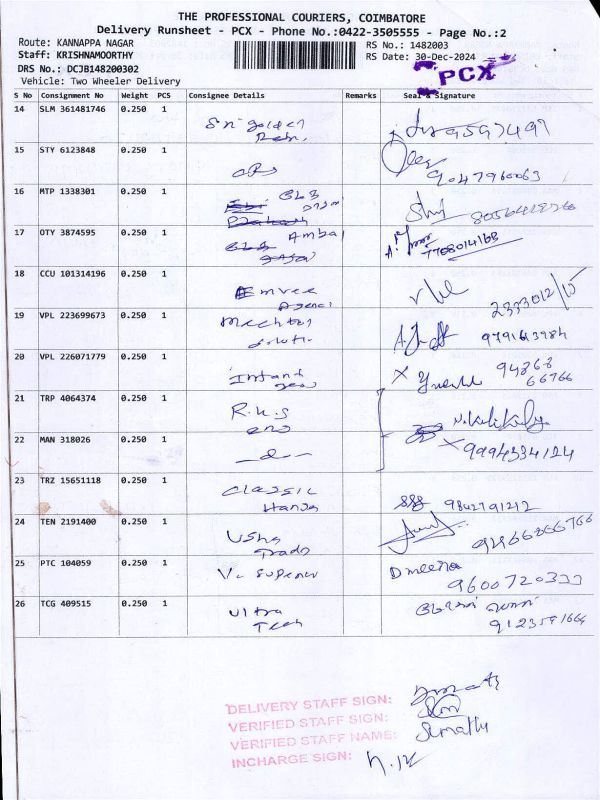 THE PROFESSIONAL COURIERS, COIMBATORE
Delivery Runsheet - PCX - Phone No.:0422-3505555 - Page No.:2
Route: KANNAPPA NAGAR RS No.: 1482003
Staff: KRISHNAMOORTHY RS Date: 30-Dec-2024
DRS No.: DCJB148200302 PCX
Vehicle: Two Wheeler Delivery
S No Consignment No Weight PCS Consignee Details Remarks Seal & Signature
14 SLM 361481746 0.250 1
Sri golden
15 STY 6123848 0.250 1
9047960063
16 MTP 1338301 0.250 1 GLB
17 OTY 3874595 0.250 1 Ambal
7708014168
18 CCU 101314196 0.250 1
Emvee
2333012/15
19 VPL 223699673 0.250 1
9791613984
20 VPL 226071779 0.250 1
Infant X 94868
66766
21 TRP 4064374 0.250 1
R.k.s
22 MAN 318026 0.250 1
X 9994334124
23 TRZ 15651118 0.250 1
Classic 9842791212
24 TEN 2191400 0.250 1
Usha
Trade
25 PTC 104059 0.250 1 D meena
V. Superior 9600720333
26 TCG 409515 0.250 1
Ultra
Tech 9123591664
DELIVERY STAFF SIGN:
VERIFIED STAFF SIGN:
VERIFIED STAFF NAME:
INCHARGE SIGN: